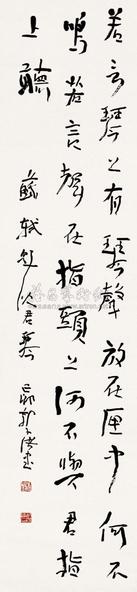 若言琴上有琴聲放在匣中何不
鳴若言聲在指頭上何不於君指
上聽 蘇軾題沈君琴